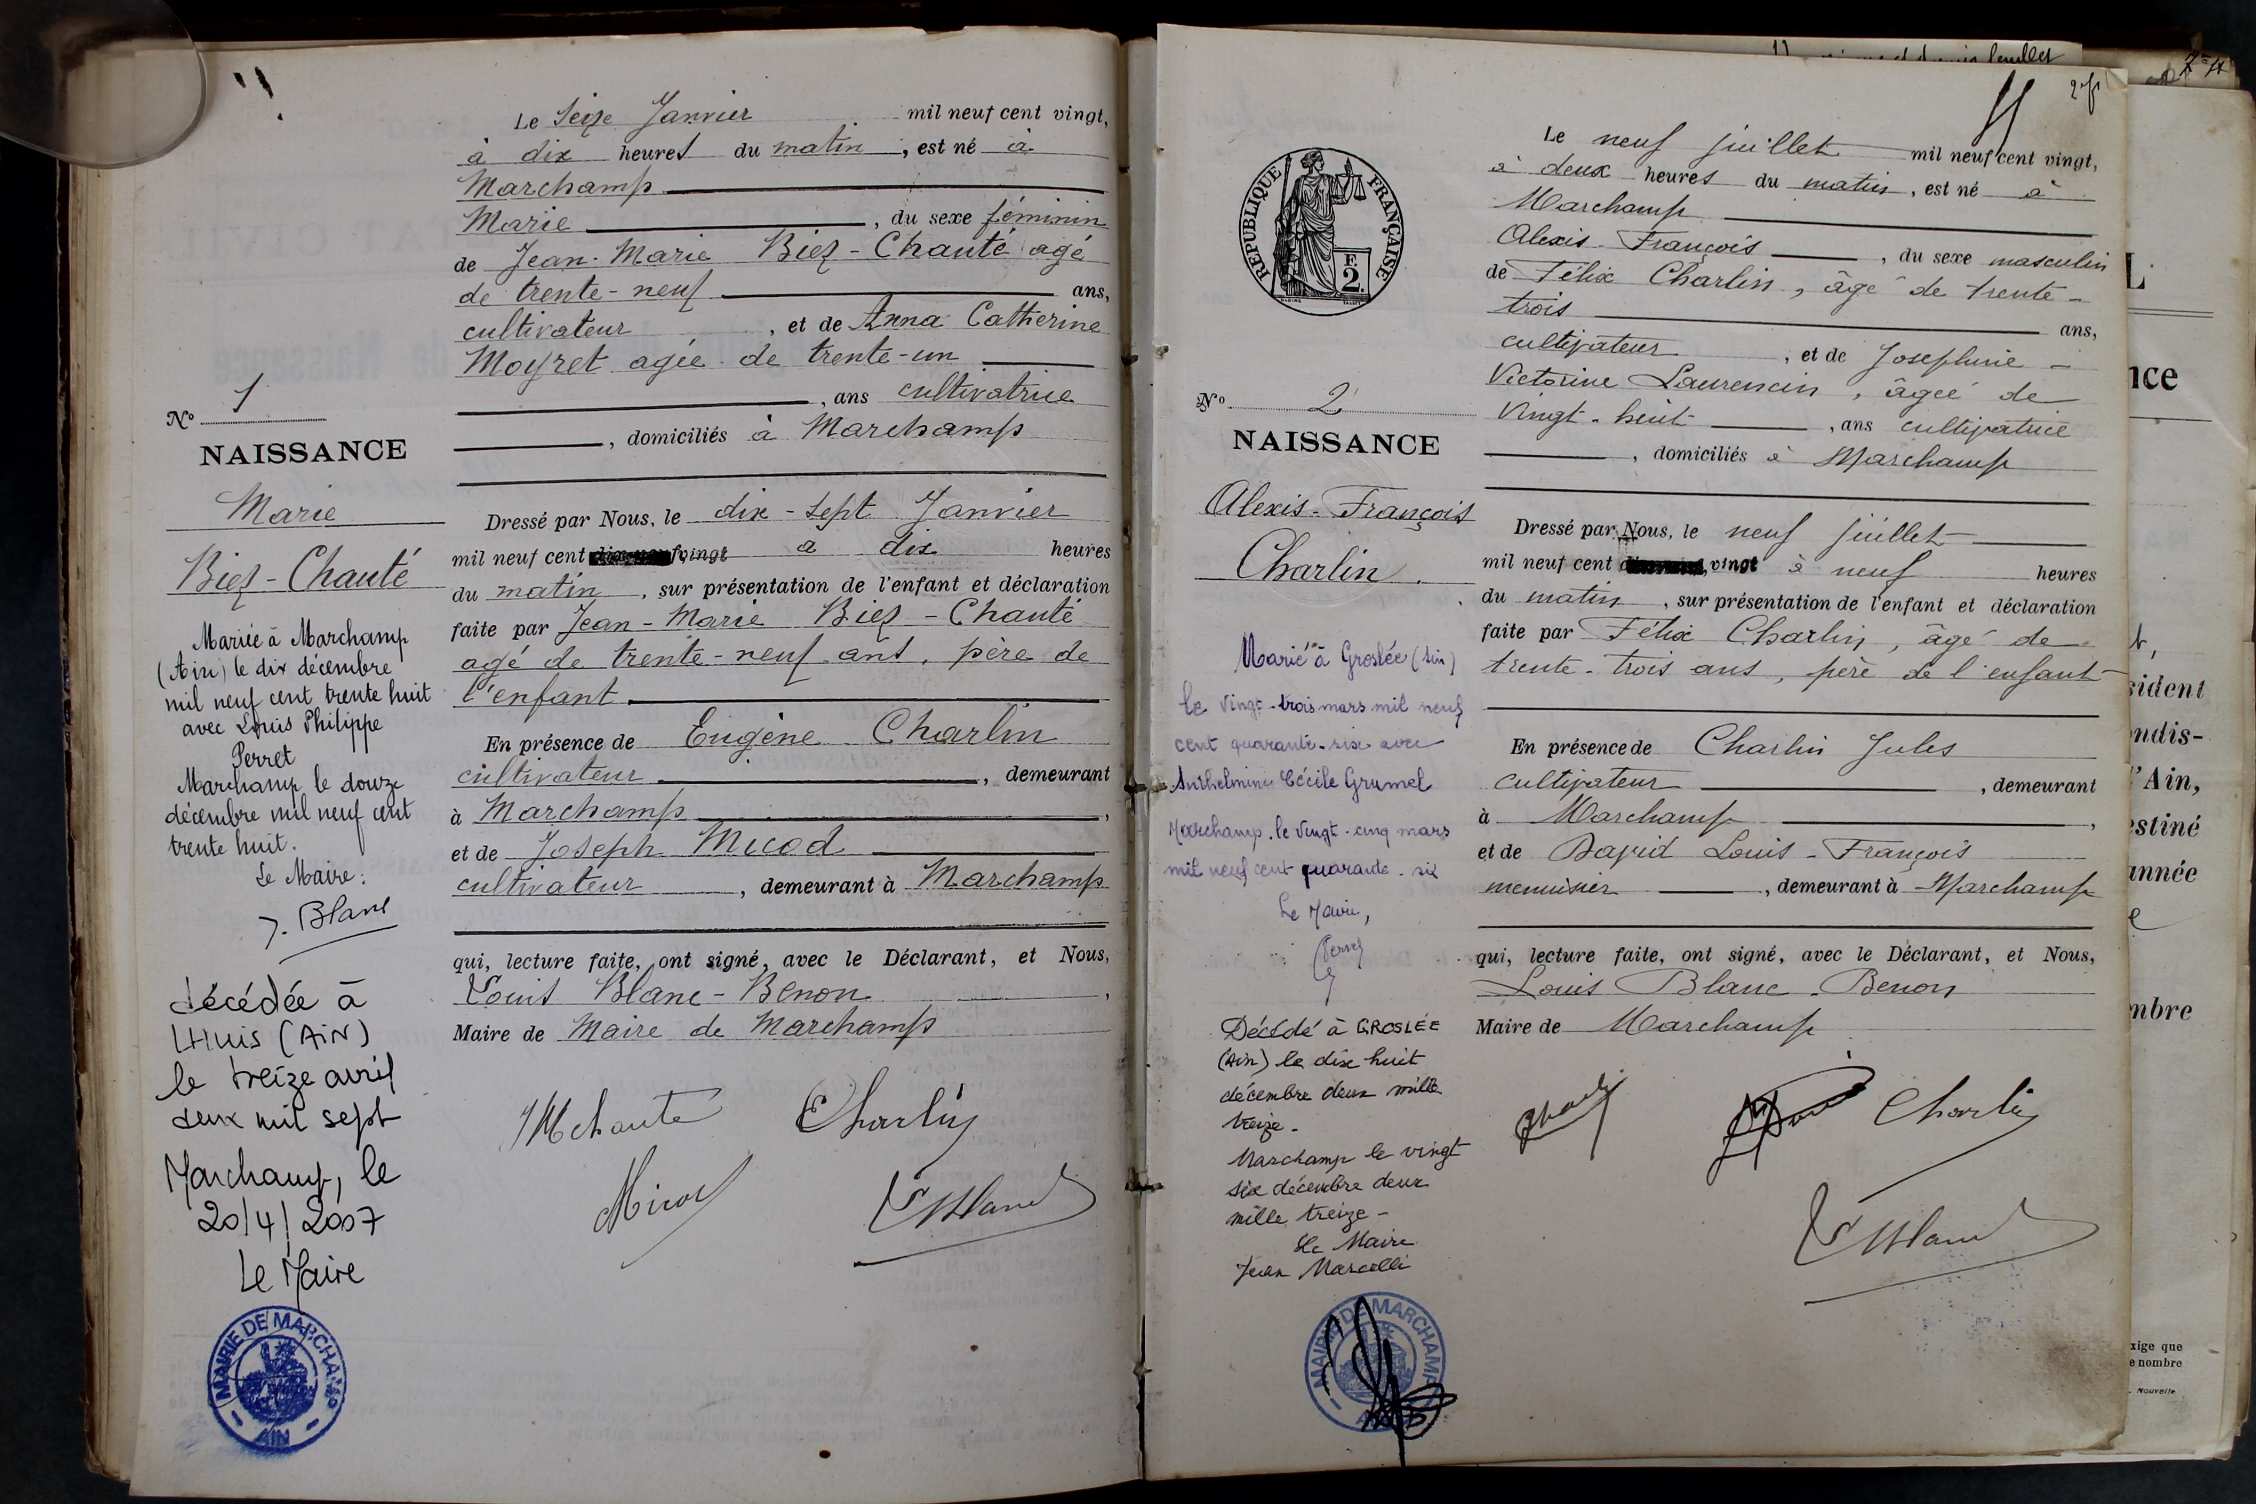 Le Seize Janvier mil neuf cent vingt,
à dix heures du matin, est né à
Marchamp
Marie, du sexe féminin
de Jean-Marie Biez-Chanté agé
de trente-neuf ans,
cultivateur, et de Anna Catherine
Moyret agée de trente-un
, ans cultivatrice
, domiciliés à Marchamp
No 1
NAISSANCE
Marie
Biez-Chanté
Mariée à Marchamp
(Ain) le dix décembre
mil neuf cent trente huit
avec Louis Philippe
Perret
Marchamp le douze
décembre mil neuf cent
trente huit.
Le Maire:
J. Blanc
décédée à
LHUIS (AIN)
le treize avril
deux mil sept
Marchamp, le
20/4/2007
Le Maire
MAIRIE DE MARCHAMP
AIN
Dressé par Nous, le dix-sept Janvier
mil neuf cent vingt à dix heures
du matin, sur présentation de l'enfant et déclaration
faite par Jean-Marie Biez-Chanté
agé de trente-neuf ans, père de
l'enfant
En présence de Eugène Charlin
cultivateur, demeurant
à Marchamp,
et de Joseph Micod
cultivateur, demeurant à Marchamp
qui, lecture faite, ont signé, avec le Déclarant, et Nous,
Louis Blanc-Benon,
Maire de Maire de Marchamp
JMchanté
E Charlin
Micod
LBlanc
27
Le neuf juillet mil neuf cent vingt,
à deux heures du matin, est né à
Marchamp
Alexis-François, du sexe masculin
de Félix Charlin, âgé de trente-
trois ans,
cultivateur, et de Josephine-
Victorine Laurencin, âgée de
Vingt-huit, ans cultivatrice
, domiciliés à Marchamp
REPUBLIQUE FRANÇAISE
E
2.
No 2
NAISSANCE
Alexis-François
Charlin
Marié à Groslée (Ain)
le vingt-trois mars mil neuf
cent quarante-six avec
Anthelmine Cécile Grumel
Marchamp, le vingt-cinq mars
mil neuf cent quarante-six
Le Maire,
Décédé à GROSLÉE
(Ain) le dix huit
décembre deux mille
treize-
Marchamp le vingt
six décembre deux
mille treize-
Le Maire
Jean Marcelli
MAIRIE DE MARCHAMP
AIN
Dressé par Nous, le neuf juillet
mil neuf cent vingt à neuf heures
du matin, sur présentation de l'enfant et déclaration
faite par Félix Charlin, âgé de
trente-trois ans, père de l'enfant
En présence de Charlin Jules
cultivateur, demeurant
à Marchamp,
et de David Louis-François
menuisier, demeurant à Marchamp
qui, lecture faite, ont signé, avec le Déclarant, et Nous,
Louis Blanc-Benon
Maire de Marchamp
Charlin
LBlanc
L
nce
sident
ondis-
l'Ain,
estiné
année
mbre
xige que
e nombre
. Nouvelle